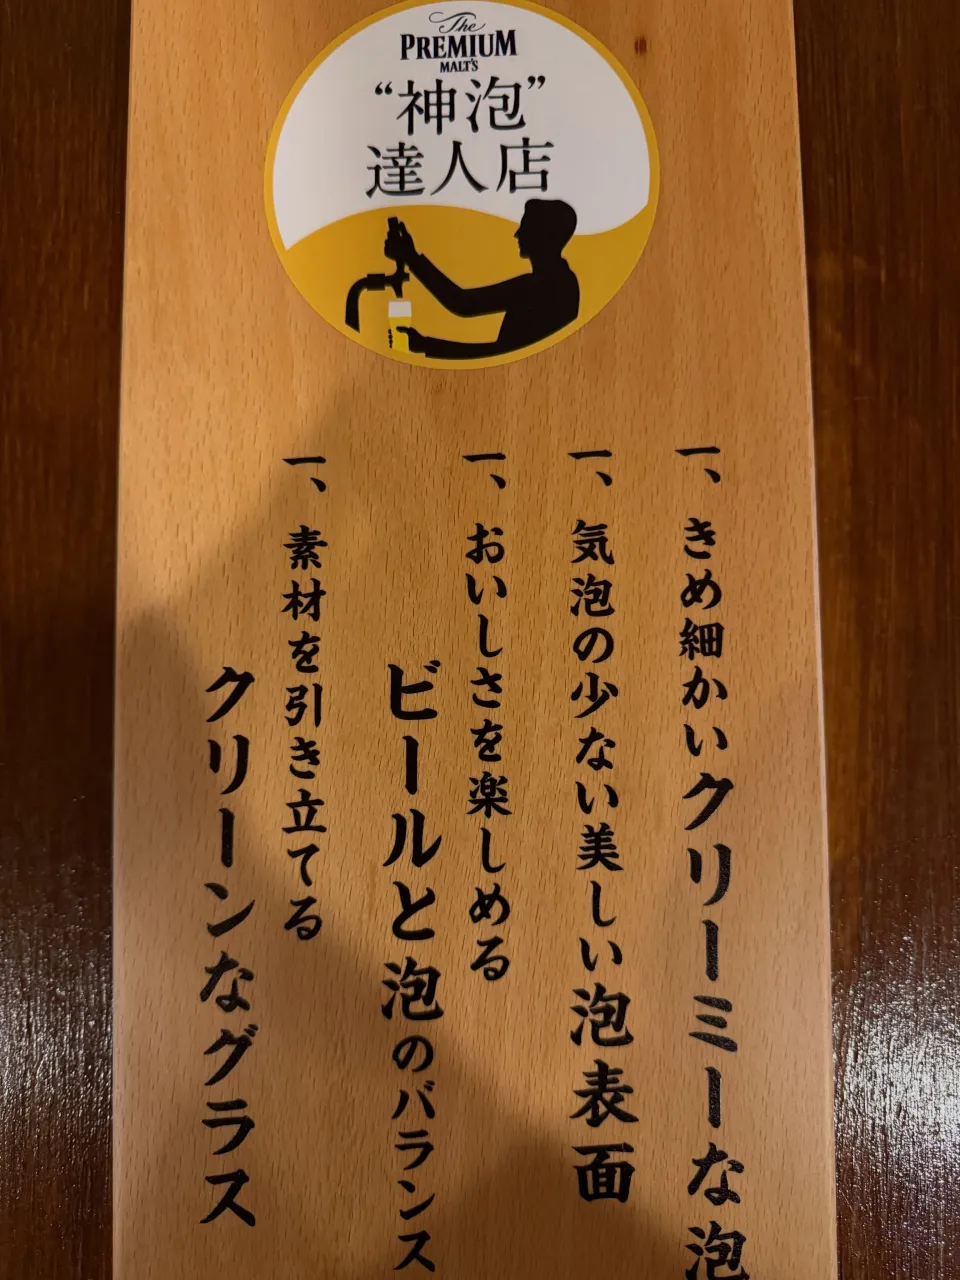 The
PREMIUM
MALT'S
“神泡”
達人店
一、きめ細かいクリーミーな泡
一、気泡の少ない美しい泡表面
一、おいしさを楽しめる
ビールと泡のバランス
一、素材を引き立てる
クリーンなグラス